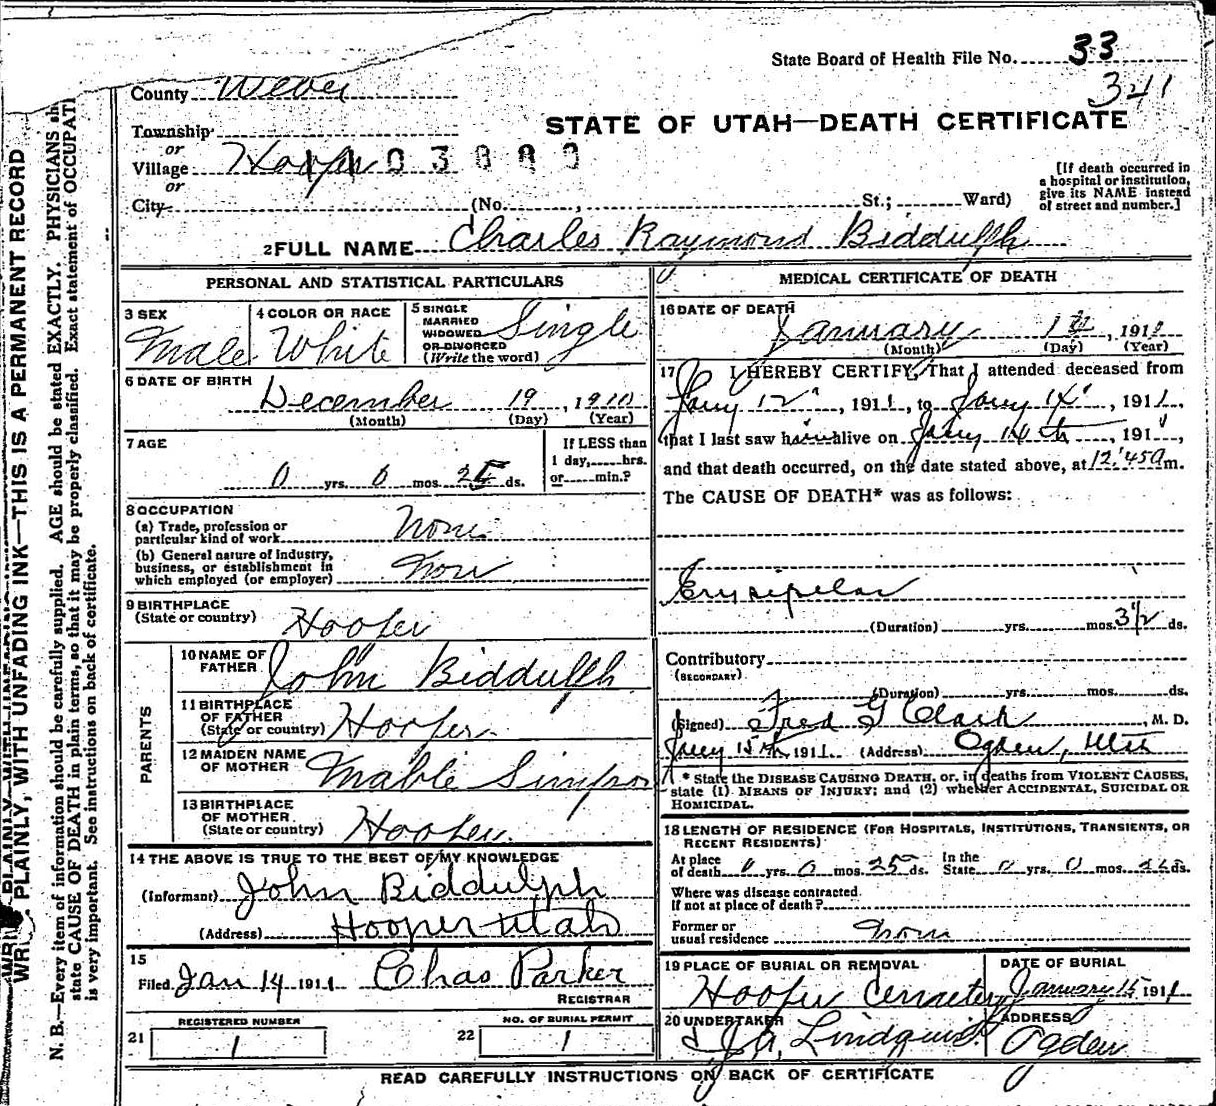 State Board of Health File No. 33
341
County Weber
STATE OF UTAH—DEATH CERTIFICATE
Township
or
Village Hooper
or
City (No. , St.; Ward)
[If death occurred in
a hospital or institution,
give its NAME instead
of street and number.]
2 FULL NAME Charles Raymond Biddulph
PERSONAL AND STATISTICAL PARTICULARS
3 SEX
Male
4 COLOR OR RACE
White
5 SINGLE
MARRIED
WIDOWED
OR DIVORCED
(Write the word)
Single
6 DATE OF BIRTH
December 19, 1910
(Month) (Day) (Year)
7 AGE
0 yrs. 0 mos. 25 ds.
If LESS than
1 day, hrs.
or min.?
8 OCCUPATION
(a) Trade, profession or
particular kind of work None
(b) General nature of industry,
business, or establishment in
which employed (or employer)
9 BIRTHPLACE
(State or country) Hooper
PARENTS
10 NAME OF
FATHER John Biddulph
11 BIRTHPLACE
OF FATHER
(State or country) Hooper
12 MAIDEN NAME
OF MOTHER Mable Simpson
13 BIRTHPLACE
OF MOTHER
(State or country) Hooper
14 THE ABOVE IS TRUE TO THE BEST OF MY KNOWLEDGE
(Informant) John Biddulph
(Address) Hooper Utah
15
Filed Jan 14 1911 Chas Parker
REGISTRAR
REGISTERED NUMBER
21 1
NO. OF BURIAL PERMIT
22 1
MEDICAL CERTIFICATE OF DEATH
16 DATE OF DEATH
January , 191
(Month) (Day) (Year)
17 I HEREBY CERTIFY, That I attended deceased from
Jany 12", 1911, to Jany 14", 1911,
that I last saw him alive on Jany 14th, 191 ,
and that death occurred, on the date stated above, at 12:45 a m.
The CAUSE OF DEATH* was as follows:
Erysipelas
(Duration) yrs. mos. 3½ ds.
Contributory
(SECONDARY)
(Duration) yrs. mos. ds.
(Signed) Fred G Clark, M. D.
Jany 15th, 1911. (Address) Ogden, Utah
* State the DISEASE CAUSING DEATH, or, in deaths from VIOLENT CAUSES,
state (1) MEANS OF INJURY; and (2) whether ACCIDENTAL, SUICIDAL OR
HOMICIDAL.
18 LENGTH OF RESIDENCE (FOR HOSPITALS, INSTITUTIONS, TRANSIENTS, OR
RECENT RESIDENTS)
At place
of death 0 yrs. 0 mos. 25 ds.
In the
State 0 yrs. 0 mos. 25 ds.
Where was disease contracted.
If not at place of death?
Former or
usual residence
19 PLACE OF BURIAL OR REMOVAL
Hooper Cemetery
DATE OF BURIAL
January 15 1911
20 UNDERTAKER
Lindquist
ADDRESS
Ogden
READ CAREFULLY INSTRUCTIONS ON BACK OF CERTIFICATE
WRITE PLAINLY, WITH UNFADING INK—THIS IS A PERMANENT RECORD
N. B.—Every item of information should be carefully supplied. AGE should be stated EXACTLY. PHYSICIANS sh
state CAUSE OF DEATH in plain terms, so that it may be properly classified. Exact statement of OCCUPATI
is very important. See instructions on back of certificate.